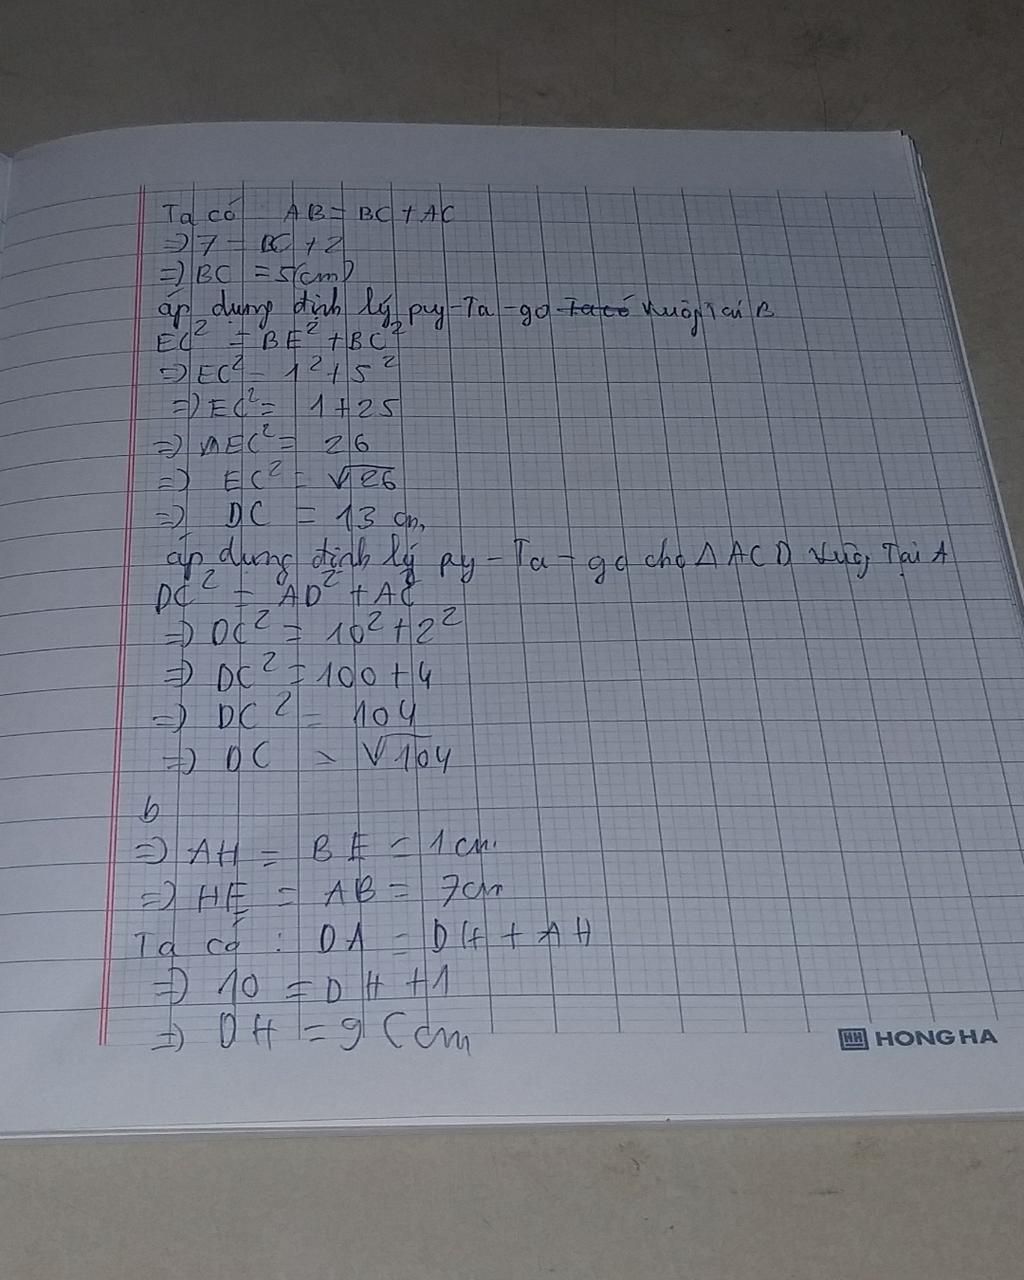 Ta có AB = BC + AC
=> 7 = BC + 2
=> BC = 5(cm)
áp dụng định lý py-Ta-go vuông Tại B
EC² = BE² + BC²
=> EC² = 1² + 5²
=> EC² = 1 + 25
=> EC² = 26
=> EC² = √26
=> DC = 13 cm,
áp dụng định lý py-Ta-go cho Δ ACD vuông Tại A
DC² = AD² + AC²
=> DC² = 10² + 2²
=> DC² = 100 + 4
=> DC² = 104
=> DC = √104
b
=> AH = BE = 1 cm.
=> HE = AB = 7cm
Ta có : DA = DH + AH
=> 10 = DH + 1
=> DH = 9 (cm
HH HONG HA